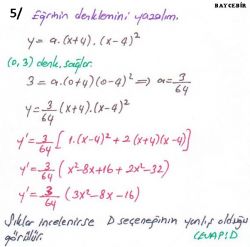 BAYCEBİR
5/ Eğrinin denklemini yazalım.
y = a.(x+4).(x-4)²
(0,3) denk. sağlar.
3 = a.(0+4)(0-4)² ⟹ a = 3/64
y = 3/64 (x+4).(x-4)²
y' = 3/64 [1.(x-4)² + 2(x+4)(x-4)]
y' = 3/64 (x²-8x+16 + 2x²-32)
y' = 3/64 (3x²-8x-16)
Şıklar incelenirse D seçeneğinin yanlış olduğu
görülür. CEVAP:D